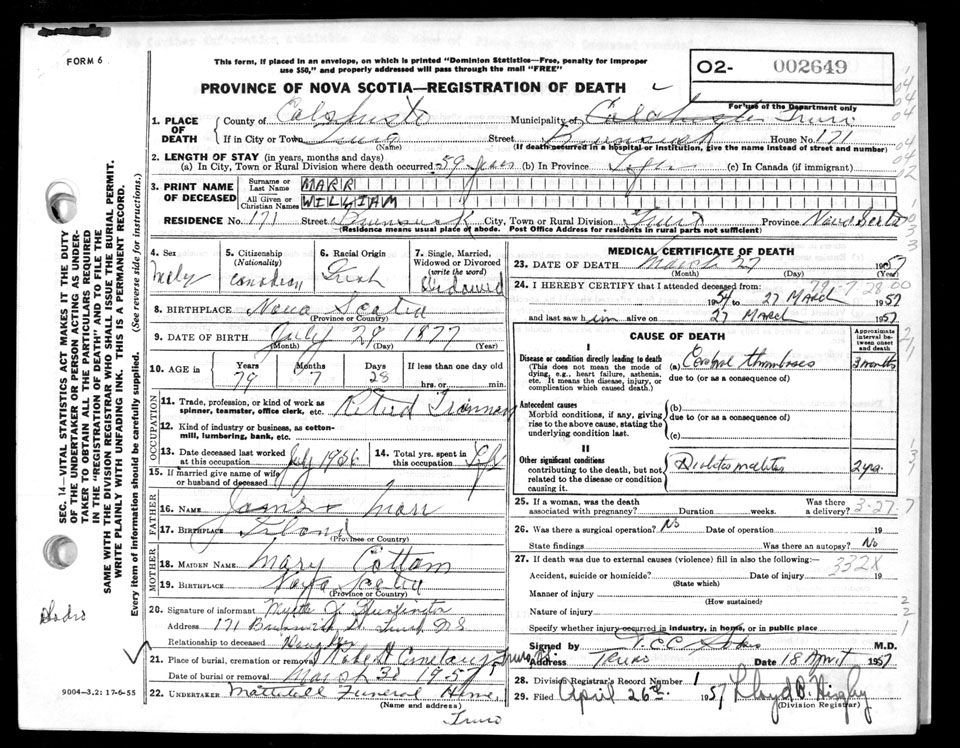 FORM 6
This form, if placed in an envelope, on which is printed "Dominion Statistics—Free, penalty for improper
use $50," and properly addressed will pass through the mail "FREE"
02- 002649
PROVINCE OF NOVA SCOTIA—REGISTRATION OF DEATH
For use of the Department only
1. PLACE OF DEATH
County of Municipality of Truro
If in City or Town Truro (Name) Street Brunswick House No. 171
(If death occurred in a hospital or institution, give the name instead of street and number)
2. LENGTH OF STAY (in years, months and days)
(a) In City, Town or Rural Division where death occurred 59 years (b) In Province Life (c) In Canada (if immigrant)
3. PRINT NAME OF DECEASED
Surname or Last Name MARR
All Given or Christian Names WILLIAM
RESIDENCE No. 171 Street Brunswick City, Town or Rural Division Truro Province Nova Scotia
(Residence means usual place of abode. Post Office Address for residents in rural parts not sufficient)
4. Sex
5. Citizenship (Nationality) Canadian
6. Racial Origin Irish
7. Single, Married, Widowed or Divorced (write the word) Widowed
8. BIRTHPLACE Nova Scotia
(Province or Country)
9. DATE OF BIRTH July 29 1877
(Month) (Day) (Year)
10. AGE in Years 79 Months 7 Days 28 If less than one day old hrs. or min.
OCCUPATION
11. Trade, profession, or kind of work as spinner, teamster, office clerk, etc. Retired
12. Kind of industry or business, as cotton-mill, lumbering, bank, etc.
13. Date deceased last worked at this occupation July 1956
14. Total yrs. spent in this occupation Life
15. If married give name of wife or husband of deceased
FATHER
16. NAME James Marr
17. BIRTHPLACE Ireland
(Province or Country)
MOTHER
18. MAIDEN NAME Mary Cottam
19. BIRTHPLACE Nova Scotia
(Province or Country)
20. Signature of informant
Address 171 Brunswick St. Truro N S
Relationship to deceased Daughter
21. Place of burial, cremation or removal Cemetery Truro N.S.
Date of burial or removal March 30 1957
22. UNDERTAKER Mattatall Funeral Home,
(Name and address)
Truro
MEDICAL CERTIFICATE OF DEATH
23. DATE OF DEATH March 27 1957
(Month) (Day) (Year)
24. I HEREBY CERTIFY that I attended deceased from:
1954 to 27 March 1957
and last saw him alive on 27 March 1957
CAUSE OF DEATH
Approximate interval between onset and death
I
Disease or condition directly leading to death
(This does not mean the mode of dying, e.g., heart failure, asthenia, etc. It means the disease, injury, or complication which caused death.)
(a) Cerebral thrombosis 3 months
due to (or as a consequence of)
Antecedent causes
Morbid conditions, if any, giving rise to the above cause, stating the underlying condition last.
(b)
due to (or as a consequence of)
(c)
II
Other significant conditions
contributing to the death, but not related to the disease or condition causing it.
Diabetes mellitus 2 yrs.
25. If a woman, was the death associated with pregnancy? Duration weeks. Was there a delivery? 3-27-7
26. Was there a surgical operation? No Date of operation 19
State findings Was there an autopsy? No
27. If death was due to external causes (violence) fill in also the following:—
332X
Accident, suicide or homicide? Date of injury 19
(State which)
Manner of injury
(How sustained)
Nature of injury
Specify whether injury occurred in industry, in home, or in public place
Signed by M.D.
Address Truro Date 18 April 1957
28. Division Registrar's Record Number
29. Filed April 26th 1957
(Division Registrar)
SEC. 14—VITAL STATISTICS ACT MAKES IT THE DUTY
OF THE UNDERTAKER OR PERSON ACTING AS UNDER-
TAKER TO OBTAIN ALL THE PARTICULARS REQUIRED
IN THE "REGISTRATION OF DEATH" AND TO FILE THE
SAME WITH THE DIVISION REGISTRAR WHO SHALL ISSUE THE BURIAL PERMIT.
WRITE PLAINLY WITH UNFADING INK. THIS IS A PERMANENT RECORD.
Every item of information should be carefully supplied. (See reverse side for instructions.)
9004—3.2: 17-6-55